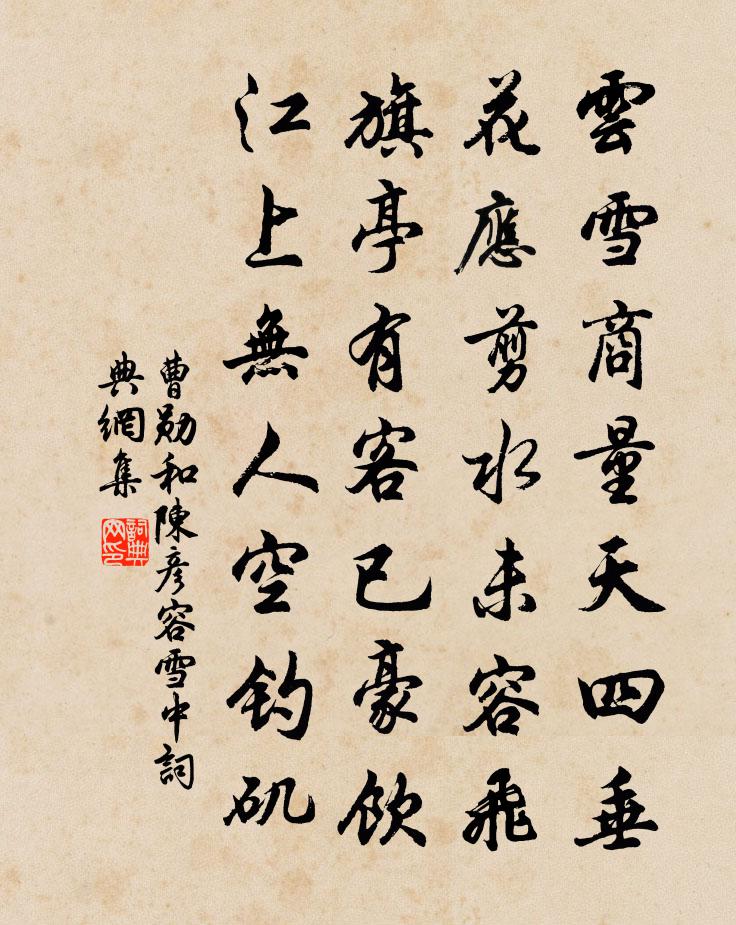 雲雪商量天四垂
花應剪水未容飛
旗亭有客已豪飲
江上無人空釣矶
曹勋和陳彦容雪中詞
典網集
詞典网印